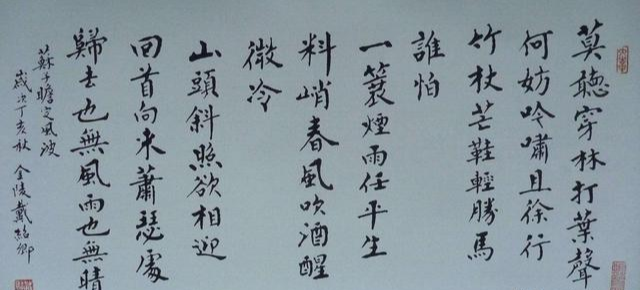 莫聽穿林打葉聲
何妨吟嘯且徐行
竹杖芒鞋輕勝馬
誰怕
一蓑煙雨任平生
料峭春風吹酒醒
微冷
山頭斜照欲相迎
回首向來蕭瑟處
歸去也無風雨也無晴
蘇子瞻定風波
歲次丁亥秋 金陵戴紹卿